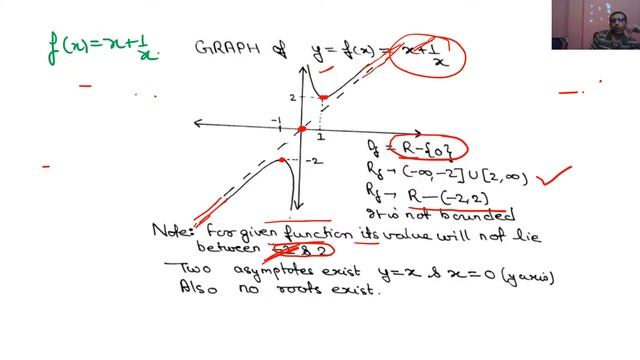 f(x)=x+1/x
GRAPH of y=f(x)=x+1/x
2
-1
1
-2
Df = R-{0}
Rf → (-∞,-2]∪[2,∞)
Rf → R-(-2,2)
It is not bounded
Note: For given function its value will not lie
between -2 & 2
Two asymptotes exist y=x & x=0 (y axis)
Also no roots exist.